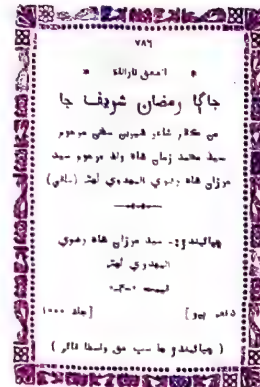 ٧٨٦
جاڳا رمضان شريف جا
من ڪلام شاعر شيرين سخن مرحوم
سيد محمد زمان شاه ولد مرحوم سيد
مرزان شاه رضوي المهدوي
ڇپائيندڙ:- سيد مرزان شاه رضوي
المهدوي
قيمت
دفعو ٻيو] [جلد ١٠٠٠
( ڇپائيندڙ جا سڀ حق واسطا قائم )